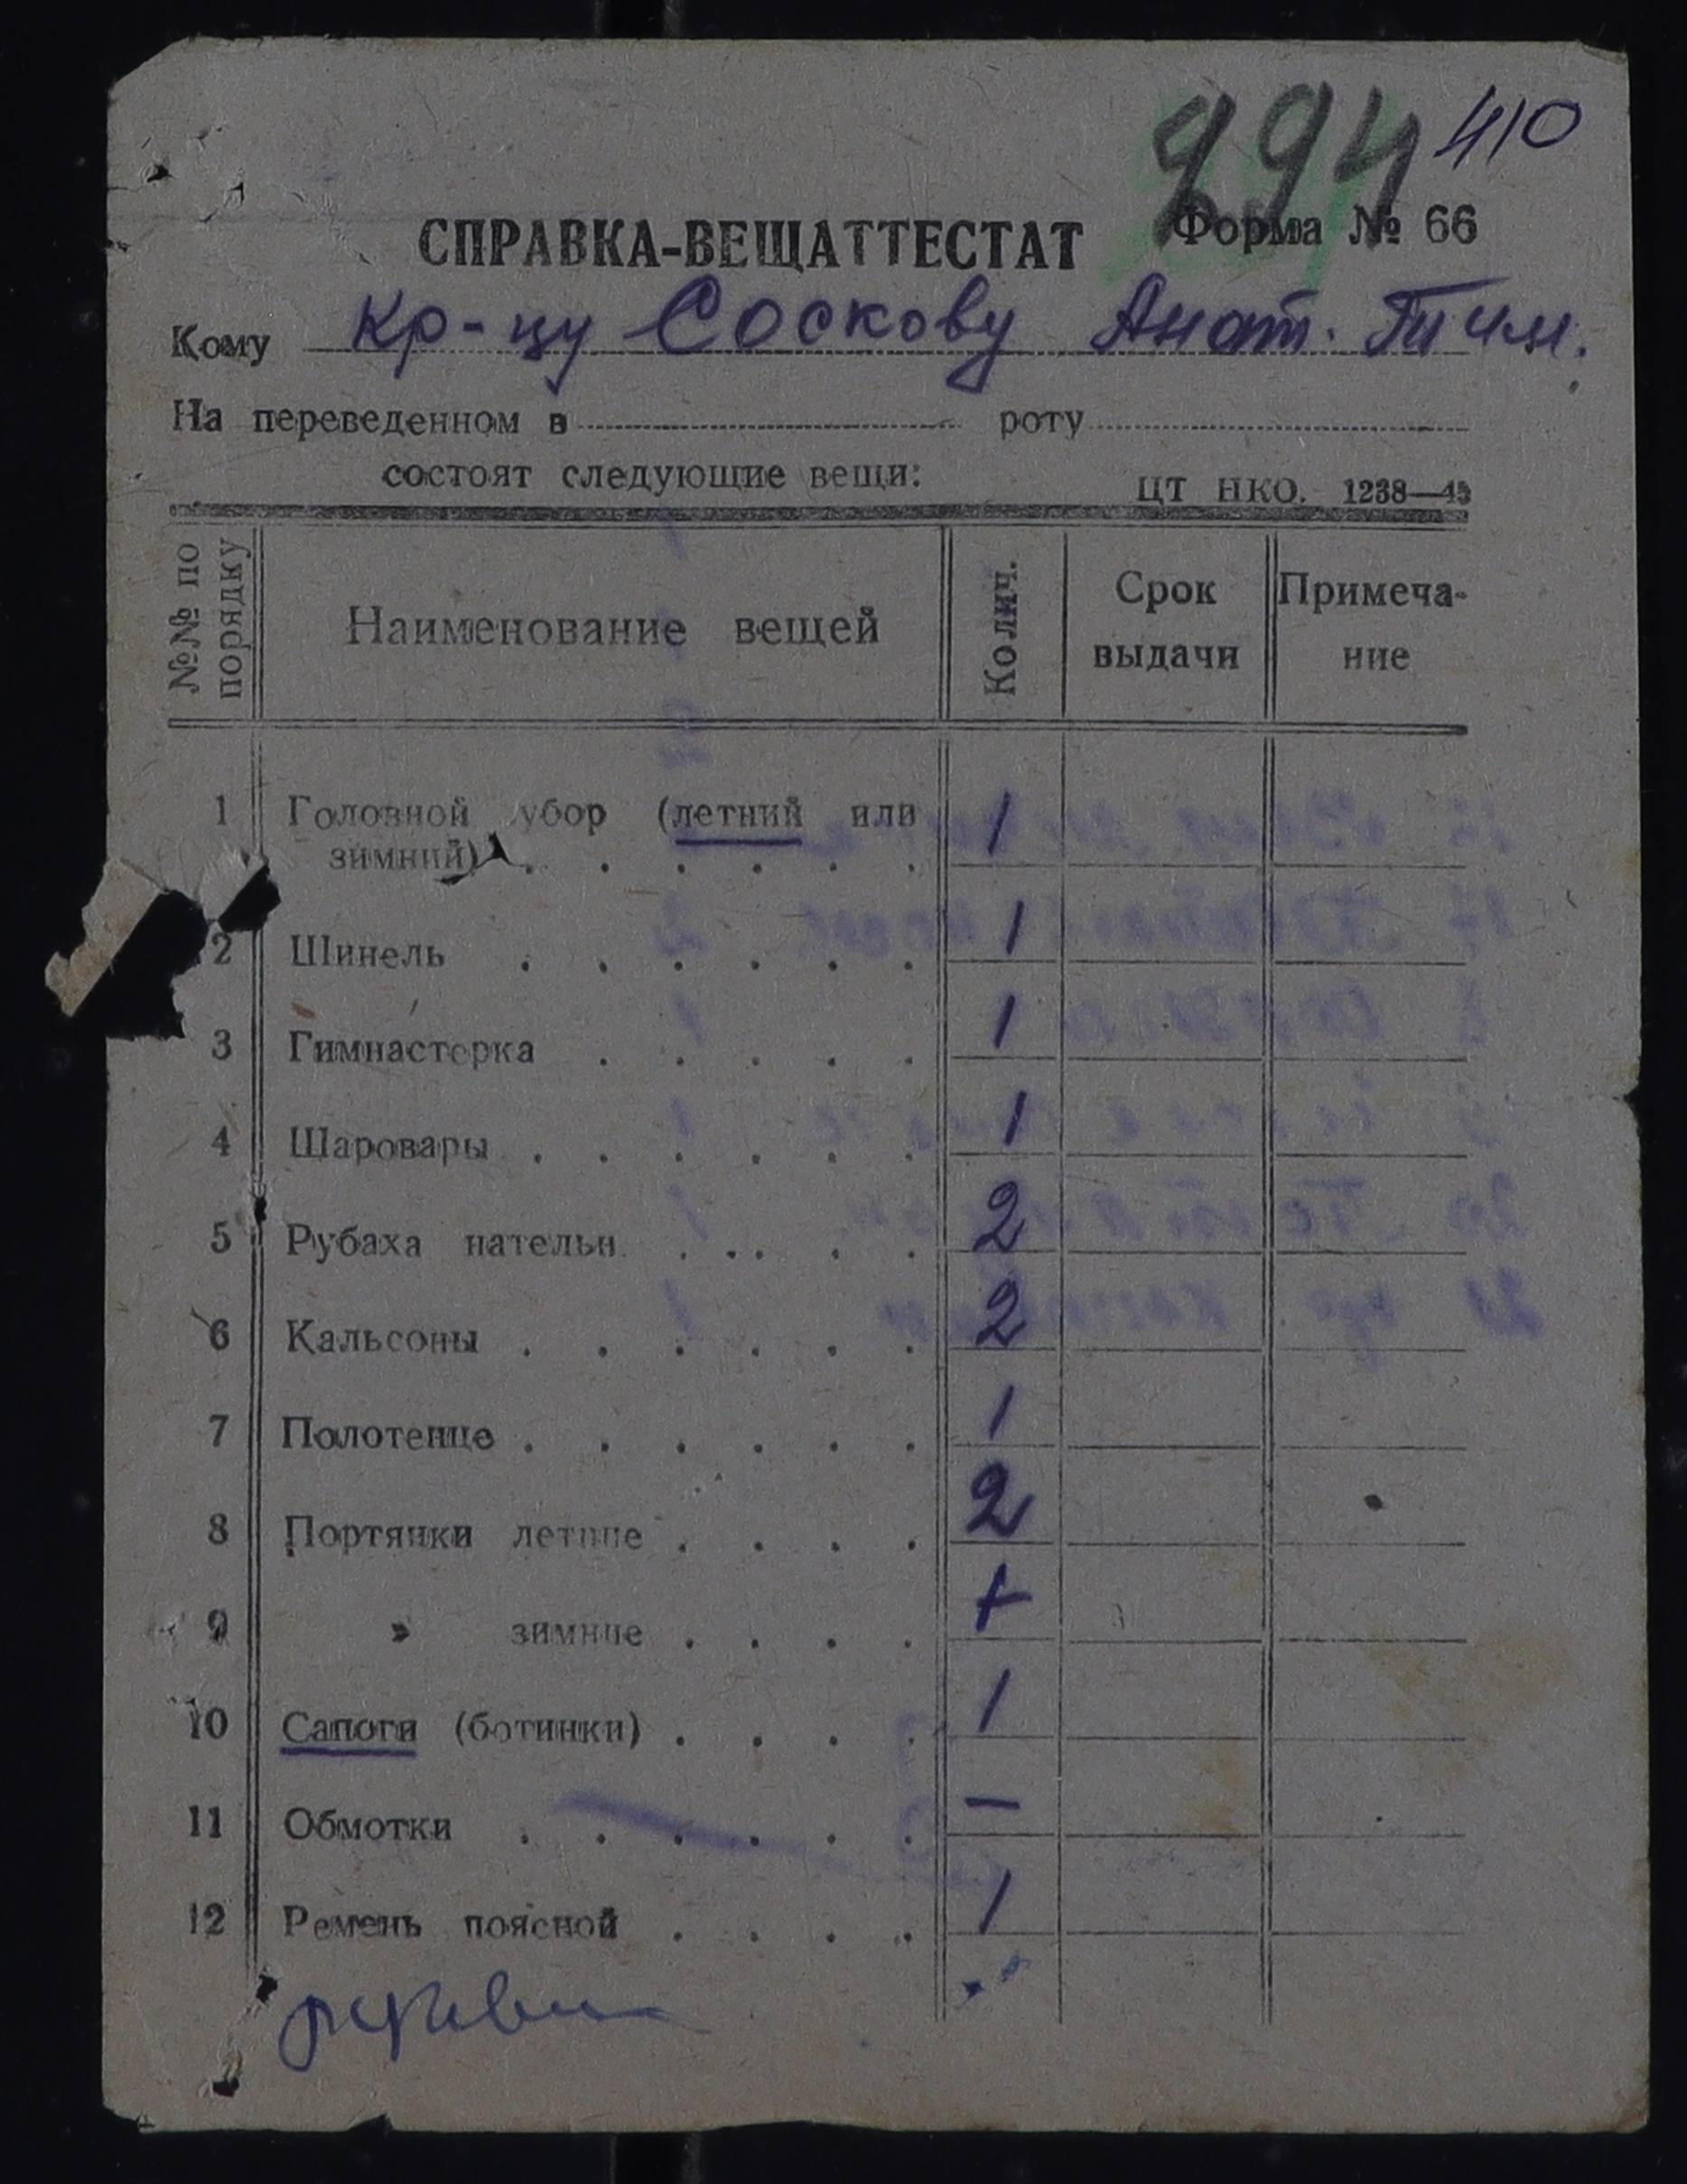 994 410
СПРАВКА-ВЕЩАТТЕСТАТ Форма № 66
Кому Кр-цу Соскову Анат. Тим.
На переведенном в роту
состоят следующие вещи: ЦТ НКО. 1238—43
№№ по порядку Наименование вещей Колич. Срок выдачи Примечание
1 Головной убор (летний или
зимний) 1
2 Шинель 1
3 Гимнастерка 1
4 Шаровары 1
5 Рубаха нательн. 2
6 Кальсоны 2
7 Полотенце 1
8 Портянки летние 2
9 » зимние +
10 Сапоги (ботинки) 1
11 Обмотки —
12 Ремень поясной 1